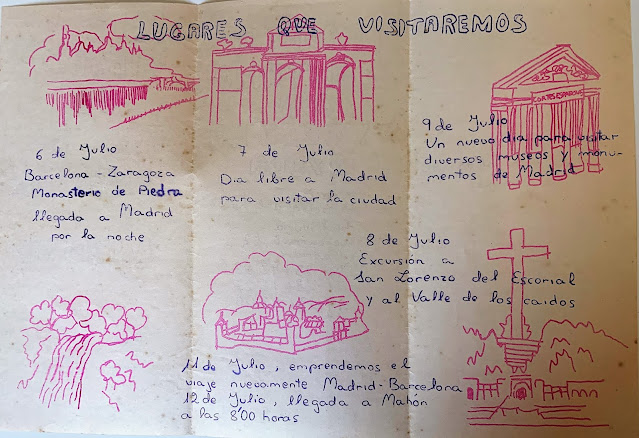 LUGARES QUE VISITAREMOS
6 de Julio
Barcelona - Zaragoza
Monasterio de Piedra
llegada a Madrid
por la noche
7 de Julio
Dia libre a Madrid
para visitar la ciudad
CORTES ESPAÑOLA
9 de Julio
Un nuevo dia para visitar
diversos museos y monu-
mentos de Madrid
8 de Julio
Excursión a
San Lorenzo del Escorial
y al Valle de los caidos
11 de Julio, emprendemos el
viaje nuevamente Madrid-Barcelona
12 de Julio, llegada a Mahón
a las 8'00 horas